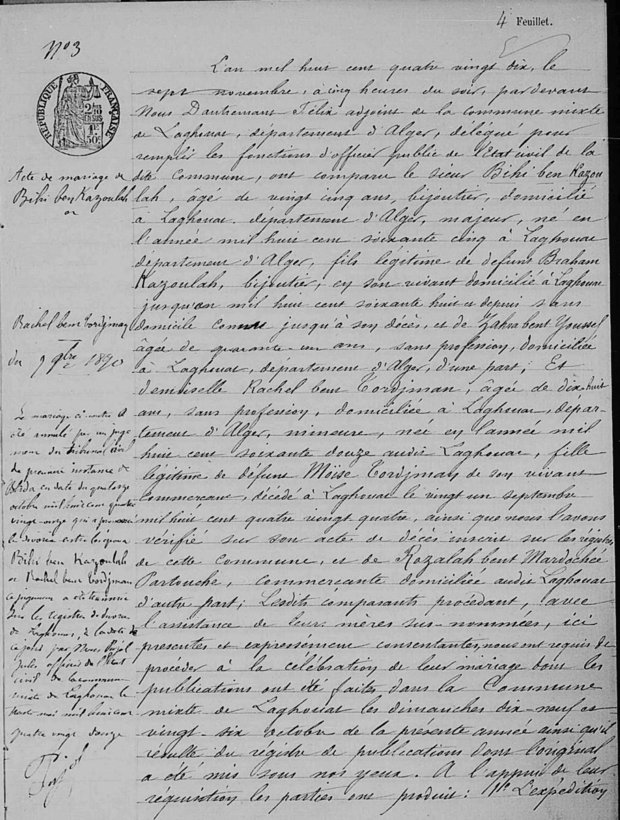 4 Feuillet.
N° 3
RÉPUBLIQUE FRANÇAISE
Acte de mariage de
Bihi ben Kazoulah
et
Rachel bent Tordjman
du 7 9bre 1890
Le mariage ci-contre a
été annulé par un juge
ment du tribunal civil
de première instance de
Blida en date du quatorze
octobre mil huit cent quatre
vingt onze qui a prononcé
le divorce entre les époux
Bihi ben Kazoulah
et Rachel bent Tordjman
ce jugement a été transcrit
sur les registres de
de Laghouat, à la date de
ce jour par Nous Pujol
Jules officier de l'Etat
civil de la commune
mixte de Laghouat le
mai mil huit cent
quatre vingt douze
Pujol
L'an mil huit cent quatre vingt dix, le
sept novembre, à cinq heures du soir, par devant
Nous Dautremant Félix adjoint de la commune mixte
de Laghouat, département d'Alger, délégué pour
remplir les fonctions d'officier public de l'Etat civil de la
dite Commune, ont comparu le sieur Bihi ben Kazou
lah, âgé de vingt cinq ans, bijoutier, domicilié
à Laghouat, département d'Alger, majeur, né en
l'année mil huit cent soixante cinq à Laghouat
département d'Alger, fils légitime de défunt Braham
Kazoulah, bijoutier, en son vivant domicilié à Laghouat
jusqu'en mil huit cent soixante huit et depuis sans
domicile connu jusqu'à son décès, et de Zahra bent Youssef
âgée de quarante-un ans, sans profession, domiciliée
à Laghouat, département d'Alger, d'une part; Et
demoiselle Rachel bent Tordjman, âgée de dix-huit
ans, sans profession, domiciliée à Laghouat, dépar-
tement d'Alger, mineure, née en l'année mil
huit cent soixante douze audit Laghouat, fille
légitime de défunt Moïse Tordjman de son vivant
commerçant, décédé à Laghouat le vingt un septembre
mil huit cent quatre vingt quatre, ainsi que nous l'avons
vérifié sur son acte de décès inscrit sur les registres
de cette commune, et de Rozalah bent Mardochée
Partouche, commerçante domiciliée audit Laghouat
d'autre part; Lesdits comparants procédant, avec
l'assistance de leurs mères sus-nommées, ici
présentes et expressément consentantes, nous ont requis de
procéder à la célébration de leur mariage dont les
publications ont été faites dans la Commune
mixte de Laghouat les dimanches dix-neuf et
vingt-six octobre de la présente année ainsi qu'il
résulte du registre de publications dont l'original
a été mis sous nos yeux. A l'appui de leur
réquisition les parties ont produit: 1° L'expédition